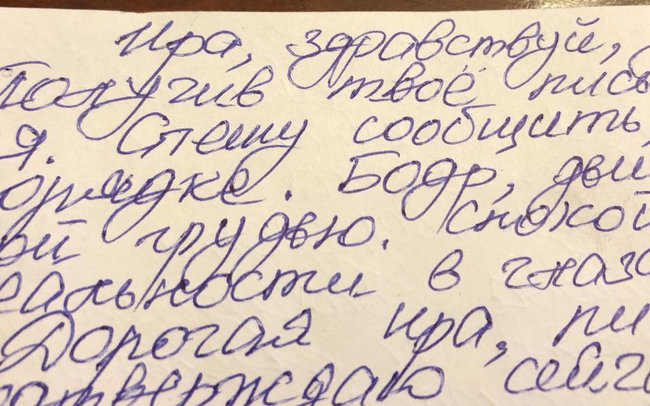 Ира, здравствуй,
Получив твоё пись
я. Спешу сообщить,
орядке. Бодр, дыш
ой грудью. Спокой
еальности в глаза
Дорогая Ира, пи
дтверждаю сейч